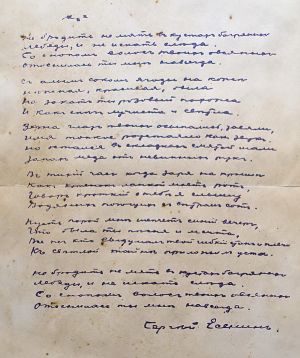 * * *
Не бродить не мять в кустах багряных
Лебеды, и не искать следа.
Со снопом волос твоих овсяных
Отоснилась ты мне навсегда.
С алым соком ягоды на коже
Нежная, красивая, была
На закат ты розовый похожа
И как снег лучиста и светла.
Зерна глаз твоих осыпались, завяли,
Имя тонкое растаяло как звук.
Но остался в складках смятой шали
Запах меда от невинных рук.
В тихий час когда заря на крыше
Как котенок лапкой моет рот,
Говор кроткий о тебе я слышу
Водяных поющих с ветром сот.
Пусть порой мне шепчет синий вечер,
Что была ты песня и мечта,
Всё ж кто выдумал твой гибкий стан и плечи
К светлой тайне приложил уста.
Не бродить не мять в кустах багряных
Лебеды, и не искать следа.
Со снопом волос твоих овсяных
Отоснилась ты мне навсегда
Сергей Есенин.